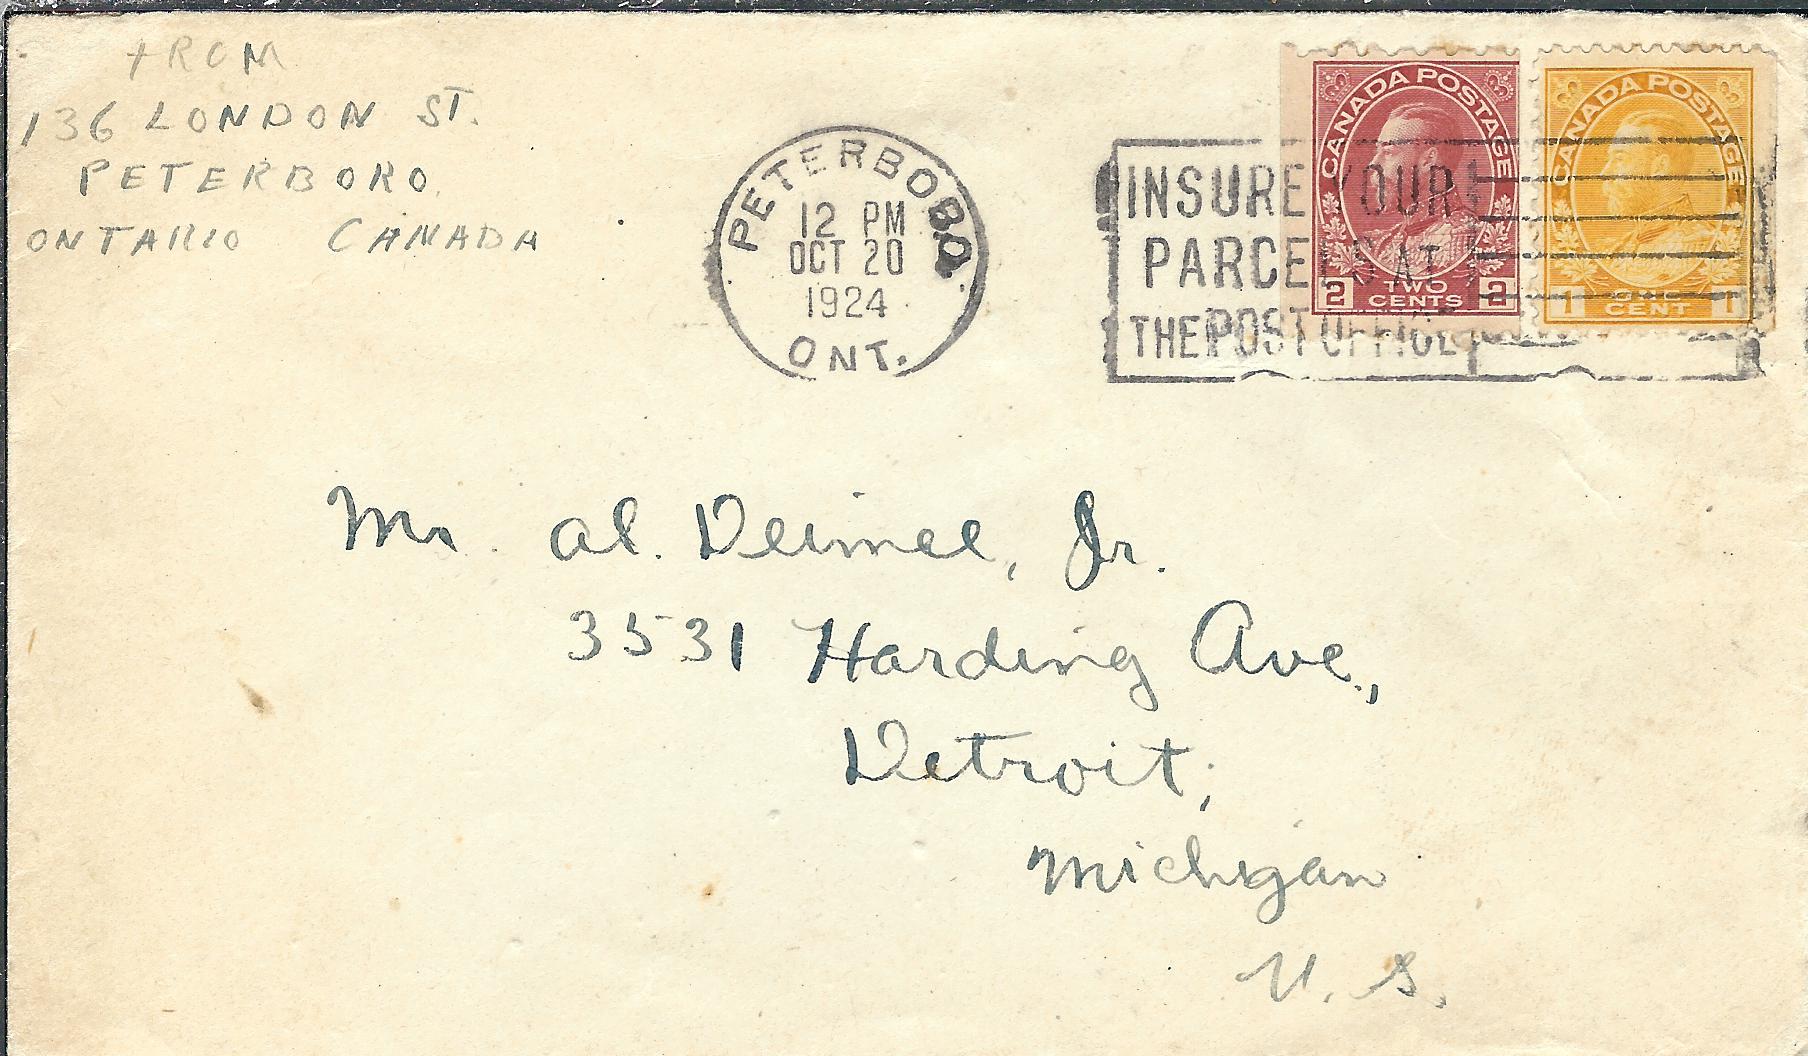 FROM
136 LONDON ST.
PETERBORO
ONTARIO CANADA
PETERBORO
12 PM
OCT 20
1924
ONT.
INSURE YOUR
PARCELS AT
THE POST OFFICE
CANADA POSTAGE
2 TWO CENTS 2
CANADA POSTAGE
1 ONE CENT 1
Mr. Al. Deimel, Jr.
3531 Harding Ave.,
Detroit,
Michigan
U. S.